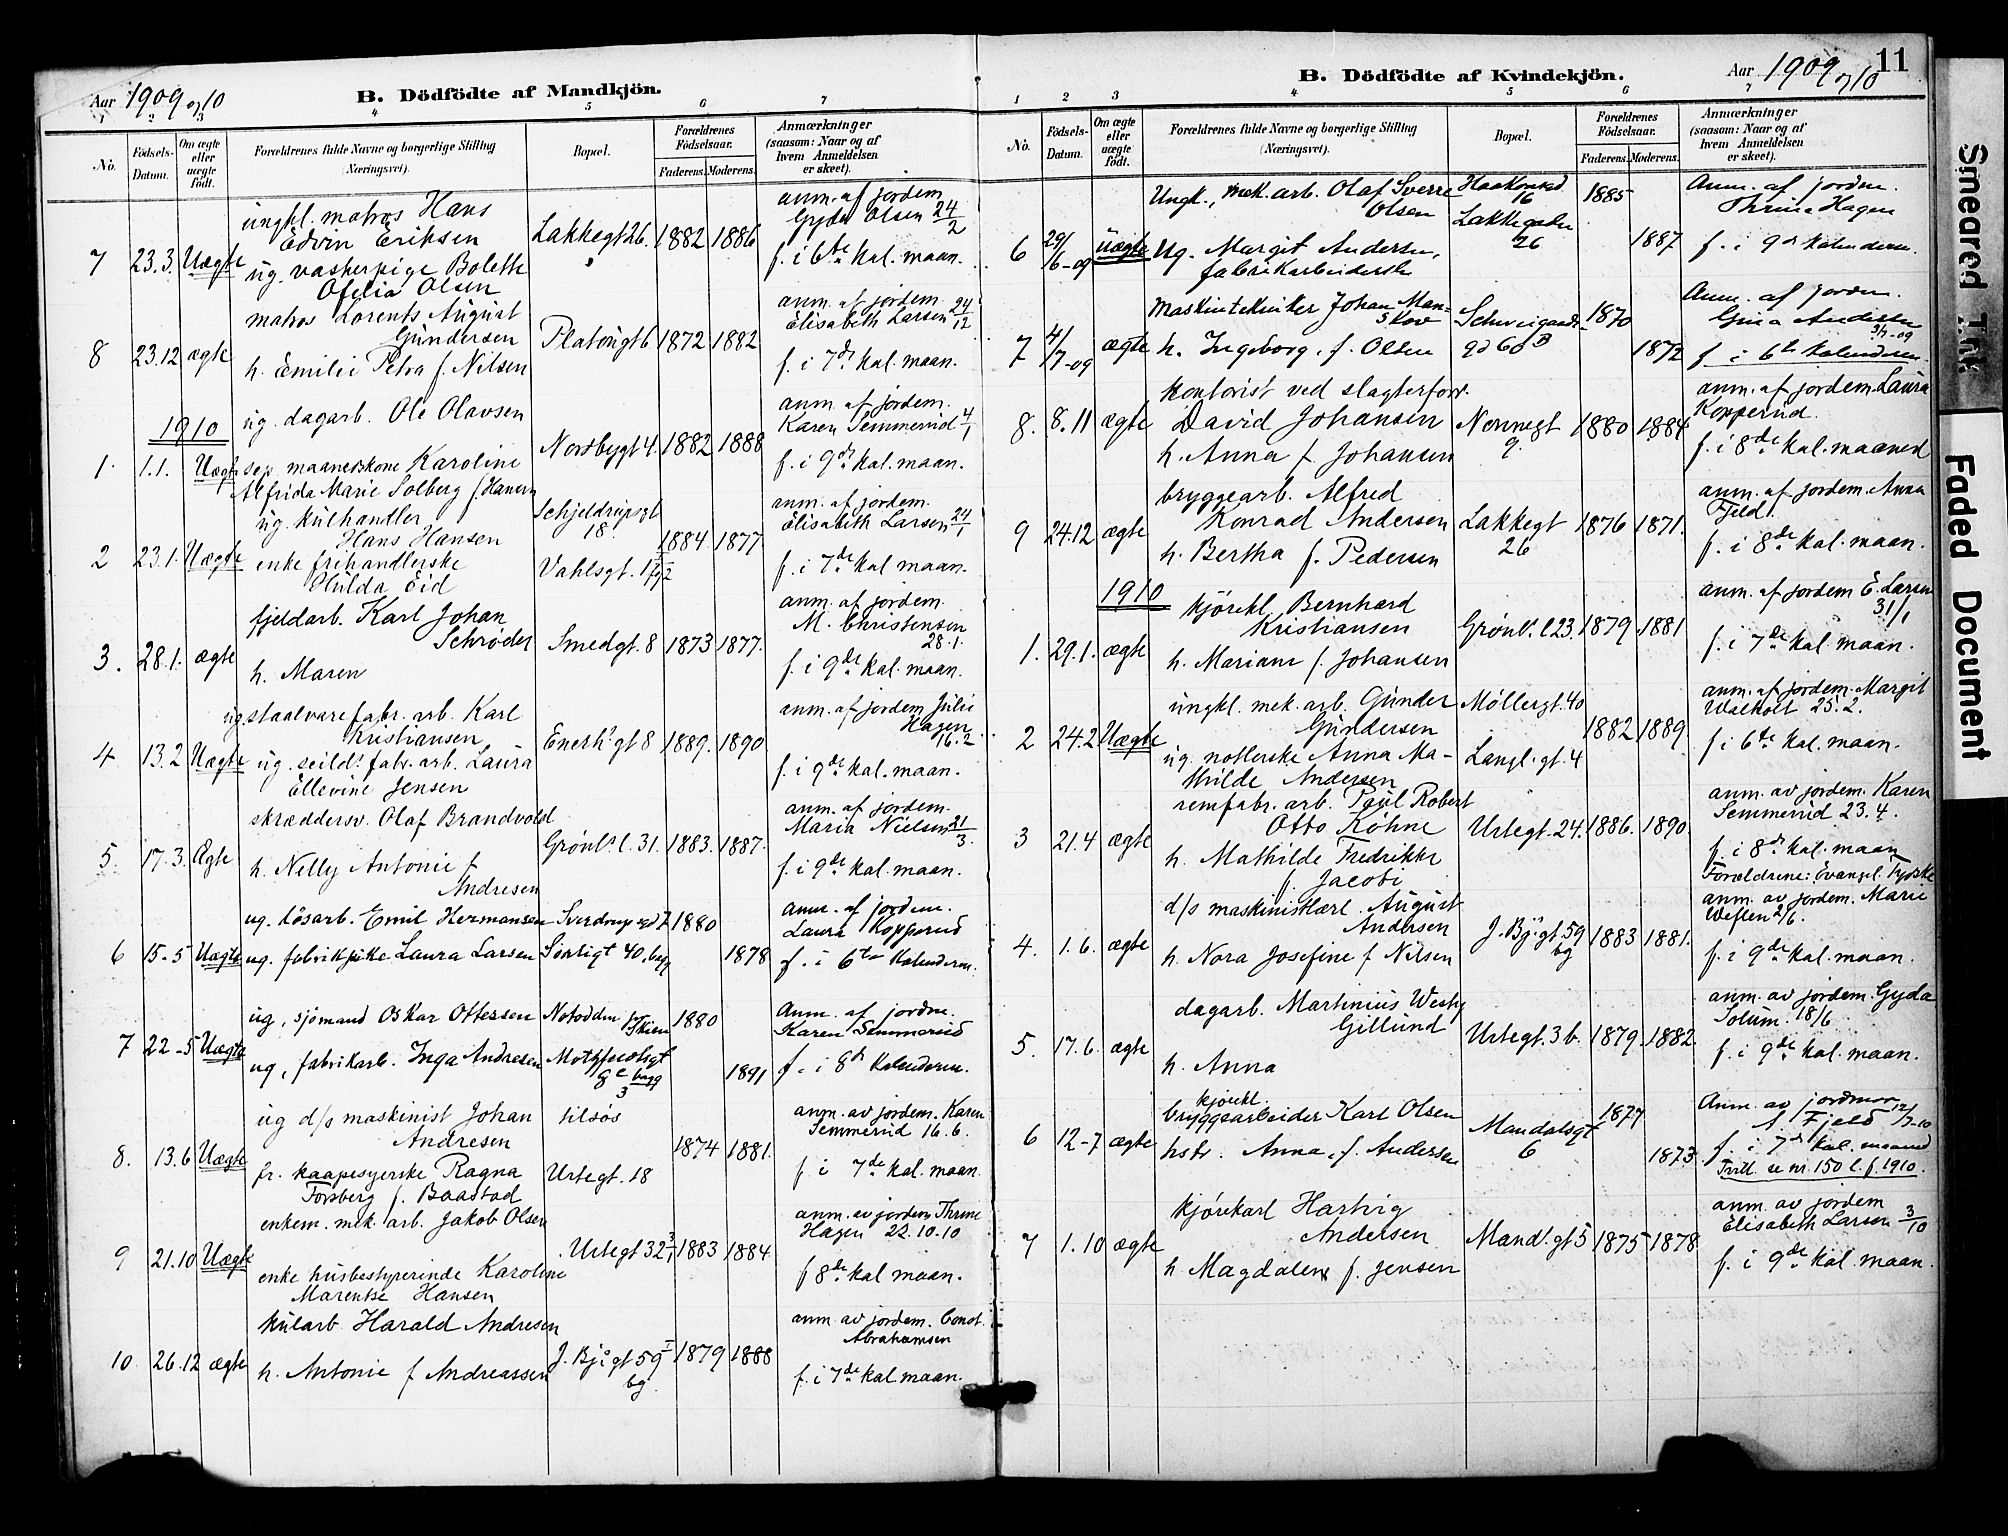 Aar 1909 og 10
B. Dödfödte af Mandkjön.
1 2 3 4 5 6 7
No.
Födsels-
Datum.
Om ægte
eller
uægte
født.
Forældrenes fulde Navne og borgerlige Stilling
(Næringsvei).
Bopæl.
Forældrenes
Födselsaar.
Faderens. Moderens.
Anmærkninger
(saasom: Naar og af
hvem Anmeldelsen
er skeet).
ungkl. matros Hans
Edvin Eriksen
7 23.3. Uægte
ug. vaskerpige Bolette
Ofelia Olsen
Lakkegt 26. 1882 1886
anm. af jordem.
Gyda Olsen 24/2
f. i 6te kal. maan.
matros Lorents August
Gundersen
8 23.12 ægte
h. Emilie Petra f. Nilsen
Platousgt 6 1872 1882
anm. af jordem.
Elisabeth Larsen 24/12
f. i 7de kal. maan.
1910
ug. dagarb. Ole Olavsen
1. 1.1. Uægte
sep. maanedskone Karoline
Alfrida Marie Solberg f. Hansen
Nordbygt 4. 1882 1888
anm. af jordem.
Karen Semmerud 4/1
f. i 9de kal. maan.
ug. kulhandler
Hans Hansen
2 23.1. Uægte
enke frihandlerske
Hulda Eid
Schjeldrupsgt
18.
Vahlsgt. 1
1884 1877
anm. af jordem.
Elisabeth Larsen 24/1
f. i 7de kal maan.
fjeldarb. Karl Johan
Schrøder
3. 28.1. ægte
h. Maren
Smedgt. 8 1873 1877.
anm. af jordem.
M. Christensen
28.1.
f. i 9de kal. maan.
ug staalvarefabr. arb. Karl
Kristiansen
4 13.2 Uægte
ug. seild. fabr. arb. Laura
Ellevine Jensen
Enerh. gt 8 1889. 1890
anm. af jordem Julie
Hagen
16.2.
f. i 9de kal. maan.
skræddersv. Olaf Brandvold
5. 17.3. Ægte
h. Nelly Antonie f
Andresen
Grønl. l. 31. 1883. 1887.
anm. af jordem.
Maria Nielsen 21/3.
f. i 9de kal. maan.
ug. løsarb. Emil Hermansen
6 15-5 Uægte
ug. fabrikpike Laura Larsen
Sverdrupsgd 7 1880
40, byg 1878
anm. af jordem.
Laura Kopperud
f. i 6te Kalenderm.
ug, sjømand Oskar Ottersen
7 22-5 Uægte
ug, fabrikarb. Inga Andresen
Notodden pr Skien 1880
Motzfeldtsgt
8 c bagg
3
1891
Anm. af jordm.
Karen Semmerud
f. i 8de Kalenderm.
ug d/s maskinist Johan
Andresen
8. 13.6 Uægte
fr. kaapesyerske Ragna
Forsberg f. Baastad
tilsøs
Urtegt. 18
1874 1881.
anm. av jordem. Karen
Semmerud 16.6.
f. i 7de kal. maan.
enkem. mek. arb. Jakob Olsen
9 21.10 Uægte
enke husbestyrerinde Karoline
Marentse Hansen
Urtegt 32 1883 1884
anm. av jordem Thrine
Hagen 22.10.10
f 8de kal maan.
kularb Harald Andresen
10 26.12 ægte
h. Antonie f Andreassen
J. Bj. gt 59 I
bg.
1879 1888
anm. av jordem. Const.
Abrahamsen
f. i 7de kal maan.
B. Dödfödte af Kvindekjön.
Aar 1909 og 10
11
1 2 3 4 5 6 7
No.
Födsels-
Datum.
Om ægte
eller
uægte
født.
Forældrenes fulde Navne og borgerlige Stilling
(Næringsvei).
Bopæl.
Forældrenes
Födselsaar.
Faderens. Moderens.
Anmærkninger
(saasom: Naar og af
hvem Anmeldelsen
er skeet).
Ungk., mek. arb. Olaf Sverre
Olsen
6 29/6-09 uægte
Ug. Margit Andersen,
fabrikarbeiderske
16
Lakkegaden
26
1885
1887
Anm. af jordm.
Thrine Hagen
f. i 9de kalenderm.
Maskintekniker Johan Man-
skow
7 4/7-09 ægte
h. Ingeborg, f. Olsen
Schweigaards-
gd 60 B
1870
1872
Anm. af jordm.
Gina Andersen
5/7-09
f i 6te kalenderm.
kontorist ved slagterforr.
8. 8.11 ægte
David Johansen
h. Anna f. Johansen
Nonnegt
9.
1880 1884
anm. af jordem. Laura
Kopperud.
f. i 8de kal. maaned
bryggearb. Alfred
Konrad Andersen
9 24.12 ægte
h. Bertha f. Pedersen
Lakkegt
26
1876 1871.
anm. af jordem. Anna
Fjeld.
f. i 8de kal. maan.
1910
kjørekl. Bernhard
Kristiansen
1. 29.1. ægte
h. Mariane f. Johansen
Grønl. l 23. 1879 1881
anm. af jordem E. Larsen
31/1
f. i 7de kal. maan.
ungkl. mek. arb. Gunder
Gundersen
2 24.2 Uægte
ug. notlerske Anna Ma-
thilde Andersen
Møllergt. 40
Langl. gt. 4
1882 1889.
anm. af jordem. Margit
Walholt 25.2.
f i 6te kal. maan.
remfabr. arb. Paul Robert
Otto Köhne
3 21.4 ægte
h. Mathilde Fredrikke
f. Jacobi
Urtegt. 24. 1886. 1890.
anm. av jordem. Karen
Semmerud 23.4.
f. i 8de kal. maan
Forældrene: Evangel. Tydske
d/s maskinist Karl August
Andersen
4. 1.6. ægte
h. Nora Josefine f Nilsen
J. Bj. gt. 59
bg
1883 1881.
anm. av jordem. Marie
Weflen 2/6.
f. i 9de kal. maan.
dagarb. Martinius Westy
Gillund
5. 17.6. ægte
h. Anna
Urtegt. 3 b. 1879. 1882.
anm. av jordem. Gyda
Solum. 18/6
f. i 9de kal. maan.
kjørekl.
bryggearbeider Karl Olsen
6 12-7 ægte
hstr. Anna, f. Andersen
Mandalsgt
6
1877
1873
Anm. av jordmor
A Fjeld 12/7-10
f. i 7de kal. maaned
Tvill. se nr. 150 l. f. 1910.
kjørekarl Hartvig
Andersen
7 1.10 ægte
h Magdalene f. Jensen
Mand. gt 5 1875 1878
anm. av jordem
Elisabeth Larsen 3/10
f. i 9de kal. maan.
Smeared Ink
Faded Document